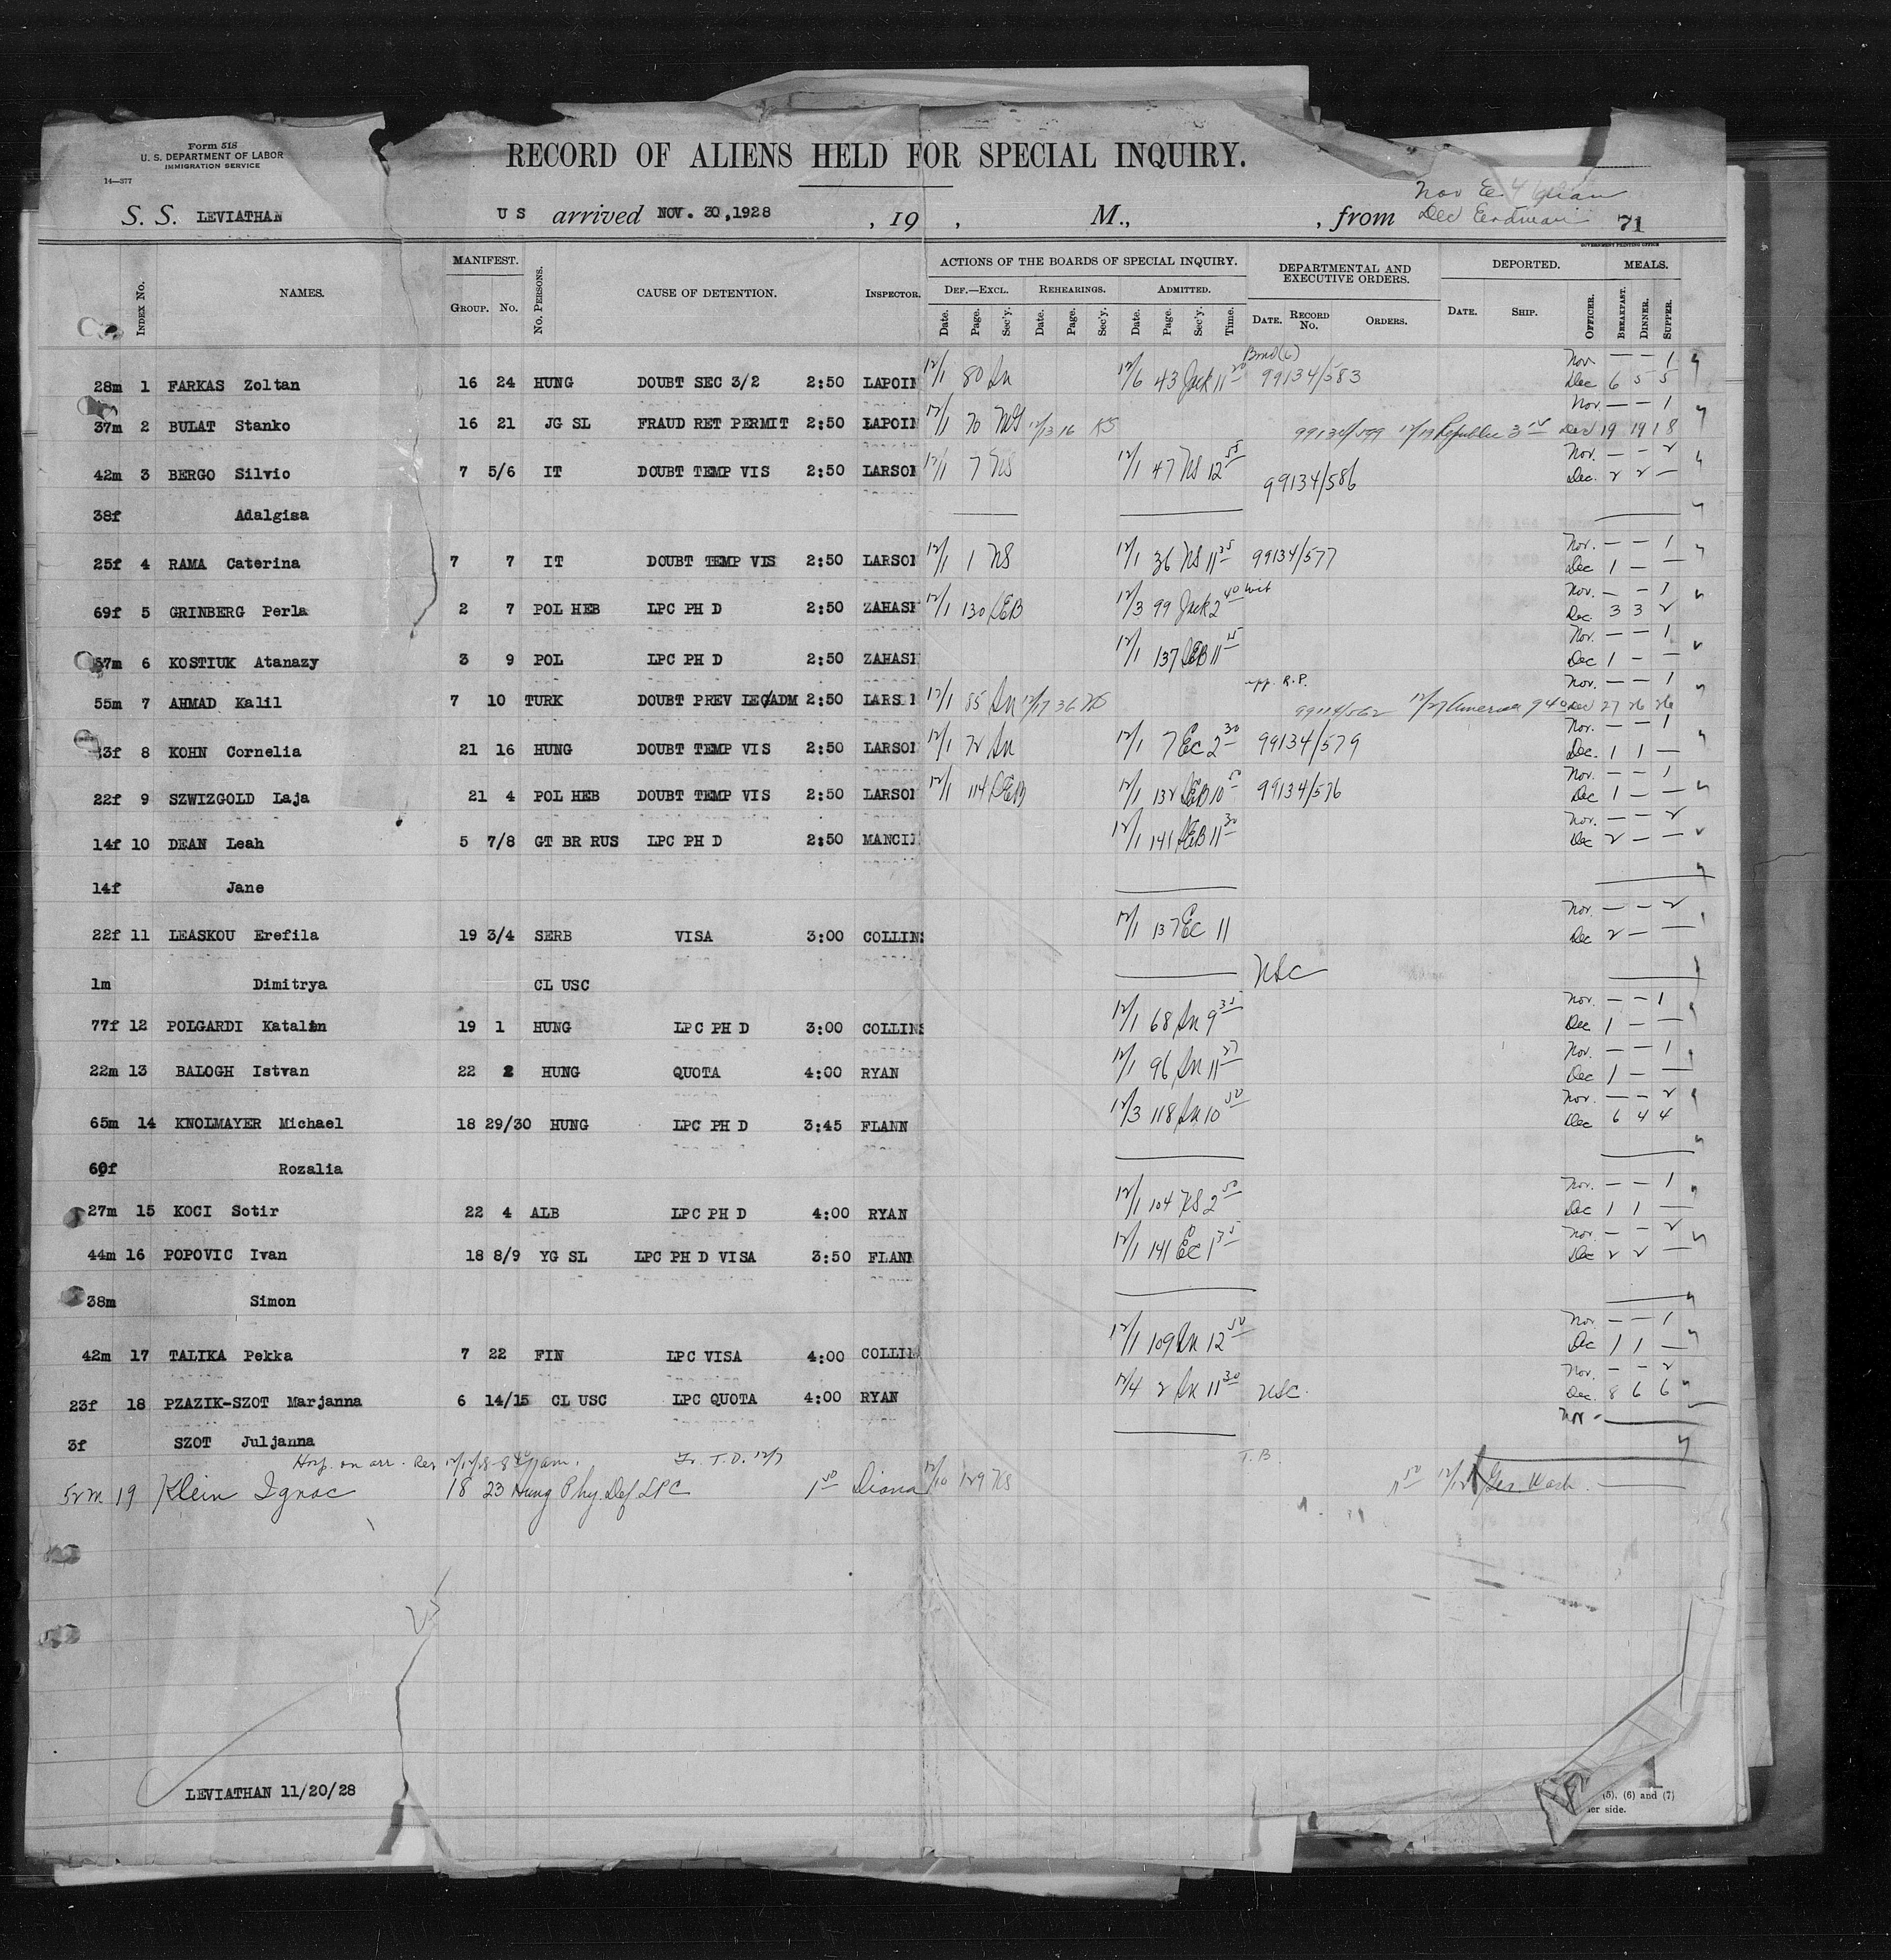 Form 518
U. S. DEPARTMENT OF LABOR
IMMIGRATION SERVICE
14—377
RECORD OF ALIENS HELD FOR SPECIAL INQUIRY.
S. S. LEVIATHAN U S arrived NOV. 30, 1928 , 19 , M., , from Dec Erdman 71
GOVERNMENT PRINTING OFFICE
MANIFEST. ACTIONS OF THE BOARDS OF SPECIAL INQUIRY. DEPARTMENTAL AND EXECUTIVE ORDERS. DEPORTED. MEALS.
INDEX NO. NAMES. GROUP. NO. NO. PERSONS. CAUSE OF DETENTION. INSPECTOR. DEF.—EXCL. REHEARINGS. ADMITTED. DATE. RECORD NO. ORDERS. DATE. SHIP. OFFICER. BREAKFAST. DINNER. SUPPER.
Date. Page. Sec'y. Date. Page. Sec'y. Date. Page. Sec'y. Time.
Bond (6) Nov — — 1
28m 1 FARKAS Zoltan 16 24 HUNG DOUBT SEC 3/2 2:50 LAPOIN 12/1 80 Sn 12/6 43 Jack 11 20 99134/583 Dec 6 5 5
Nov — — 1
37m 2 BULAT Stanko 16 21 JG SL FRAUD RET PERMIT 2:50 LAPOIN 12/1 70 NS 12/13 16 KS 99134/599 12/19 Republic 3 15 Dec 19 19 18
Nov. — — 2
42m 3 BERGO Silvio 7 5/6 IT DOUBT TEMP VIS 2:50 LARSON 12/1 7 NS 12/1 47 NS 12 55 99134/586 Dec. 2 2 —
38f Adalgisa
Nov. — — 1
25f 4 RAMA Caterina 7 7 IT DOUBT TEMP VIS 2:50 LARSON 12/1 1 NS 12/1 36 NS 11 35 99134/577 Dec 1 — —
Nov. — — 1
69f 5 GRINBERG Perla 2 7 POL HEB LPC PH D 2:50 ZAHASI 12/1 130 LEB 12/3 99 Jack 2 40 wit Dec. 3 3 2
Nov. — — 1
57m 6 KOSTIUK Atanazy 3 9 POL LPC PH D 2:50 ZAHASI 12/1 137 LEB 11 15 Dec 1 — —
app. R.P. Nov. — — 1
55m 7 AHMAD Kalil 7 10 TURK DOUBT PREV LEG/ADM 2:50 LARS 12/1 85 Sn 12/17 36 NS 99114/562 12/27 America 9 40 Dec 27 26 26
Nov. — — 1
33f 8 KOHN Cornelia 21 16 HUNG DOUBT TEMP VIS 2:50 LARSON 12/1 72 Sn 12/1 7 EC 2 30 99134/579 Dec. 1 1 —
Nov. — — 1
22f 9 SZWIZGOLD Laja 21 4 POL HEB DOUBT TEMP VIS 2:50 LARSON 12/1 114 LEB 12/1 132 LEB 10 5 99134/576 Dec 1 — —
Nov. — — 2
14f 10 DEAN Leah 5 7/8 GT BR RUS LPC PH D 2:50 MANCI 12/1 141 LEB 11 30 Dec 2 — —
14f Jane
Nov. — — 2
22f 11 LEASKOU Erefila 19 3/4 SERB VISA 3:00 COLLINS 12/1 137 EC 11 Dec 2 — —
1m Dimitrya CL USC USC
Nov. — — 1
77f 12 POLGARDI Katalin 19 1 HUNG LPC PH D 3:00 COLLINS 12/1 68 Sn 9 35 Dec 1 — —
Nov. — — 1
22m 13 BALOGH Istvan 22 2 HUNG QUOTA 4:00 RYAN 12/1 96 Sn 11 27 Dec 1 — —
Nov. — — 2
65m 14 KNOLMAYER Michael 18 29/30 HUNG LPC PH D 3:45 FLANN 12/3 118 Sn 10 50 Dec 6 4 4
60f Rozalia
Nov. — — 1
27m 15 KOCI Sotir 22 4 ALB LPC PH D 4:00 RYAN 12/1 104 KS 2 50 Dec 1 1 —
Nov. — — 2
44m 16 POPOVIC Ivan 18 8/9 YG SL LPC PH D VISA 3:50 FLANN 12/1 141 EC 1 35 Dec 2 2 —
38m Simon
Nov — — 1
42m 17 TALIKA Pekka 7 22 FIN LPC VISA 4:00 COLLIN 12/1 109 Sn 12 50 Dec 1 1 —
Nov. — — 2
23f 18 PZAZIK-SZOT Marjanna 6 14/15 CL USC LPC QUOTA 4:00 RYAN 12/4 2 Sn 11 30 USC. Dec. 8 6 6
Nov -
3f SZOT Juljanna
Hosp. on arr. T.D. 12/7 T.B
52m 19 Klein Ignac 18 23 Hung Phy. Def LPC 1 50 Diana 12/10 129 KS 12/12 Geo. Wash.
LEVIATHAN 11/20/28
(5), (6) and (7)
her side.